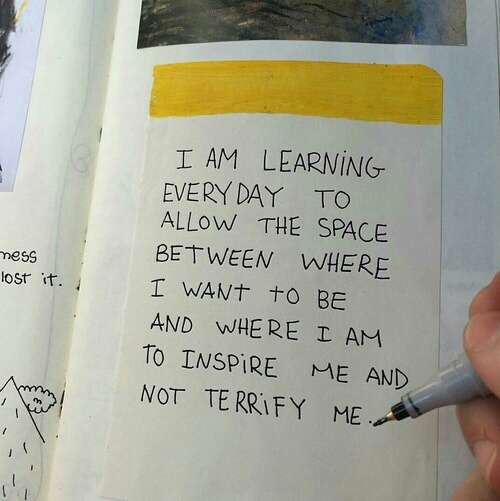 mess
lost it.
I AM LEARNING
EVERYDAY TO
ALLOW THE SPACE
BETWEEN WHERE
I WANT TO BE
AND WHERE I AM
TO INSPIRE ME AND
NOT TERRIFY ME.